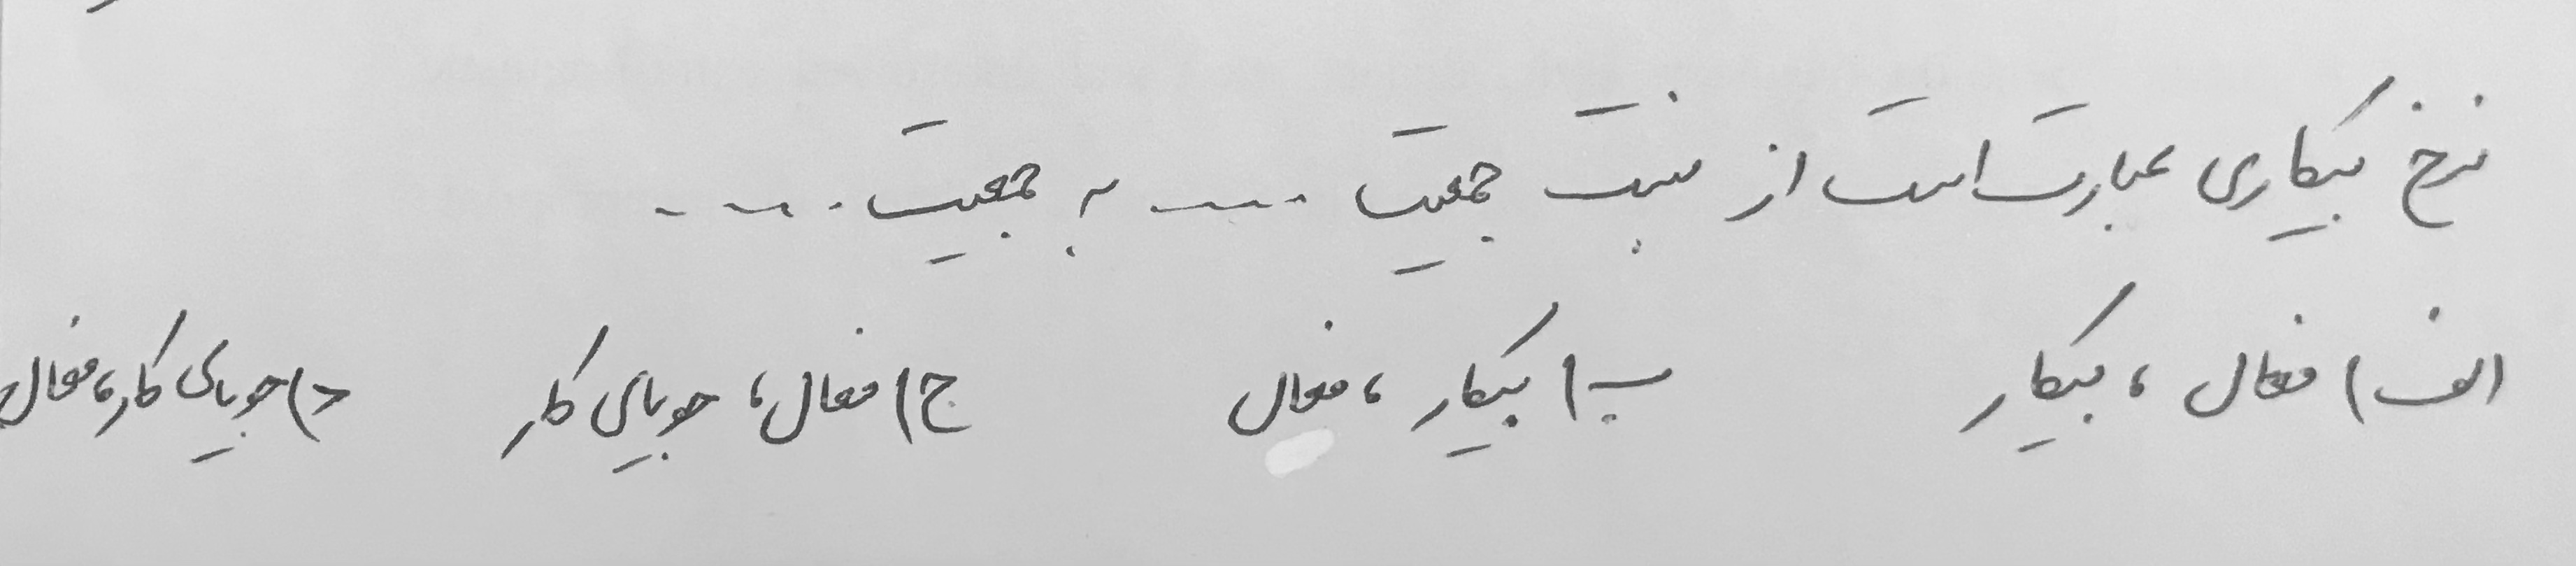 نرخ بیکاری عبارت است از نسبت جمعیت ..... به جمعیت .....
الف) فعال ، بیکار ب) بیکار ، فعال ج) فعال، جویای کار د) جویای کار، فعال